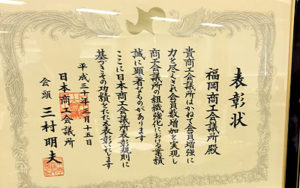 表彰状
福岡商工会議所殿
貴商工会議所はかねて会員増強に
力を尽くされ会員数増加を実現し
商工会議所の組織強化における業績
誠に顕著なものがあります
ここに日本商工会議所表彰規則に
基づきその功績をたたえ表彰いたします
平成三十年三月十五日
日本商工会議所
会頭 三村明夫